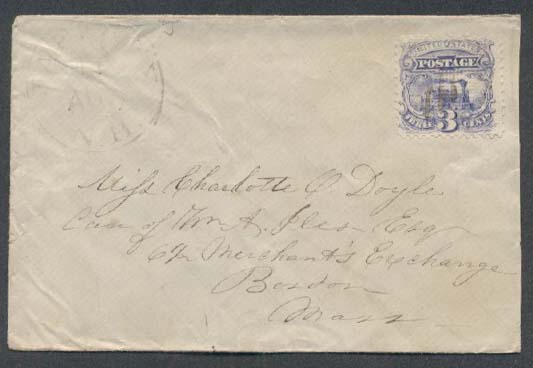 UNITED STATES
POSTAGE
3
THREE CENTS
N.H.
Miss Charlotte O Doyle
Care of Wm A. Iles Esq
67 Merchant's Exchange
Boston
Mass